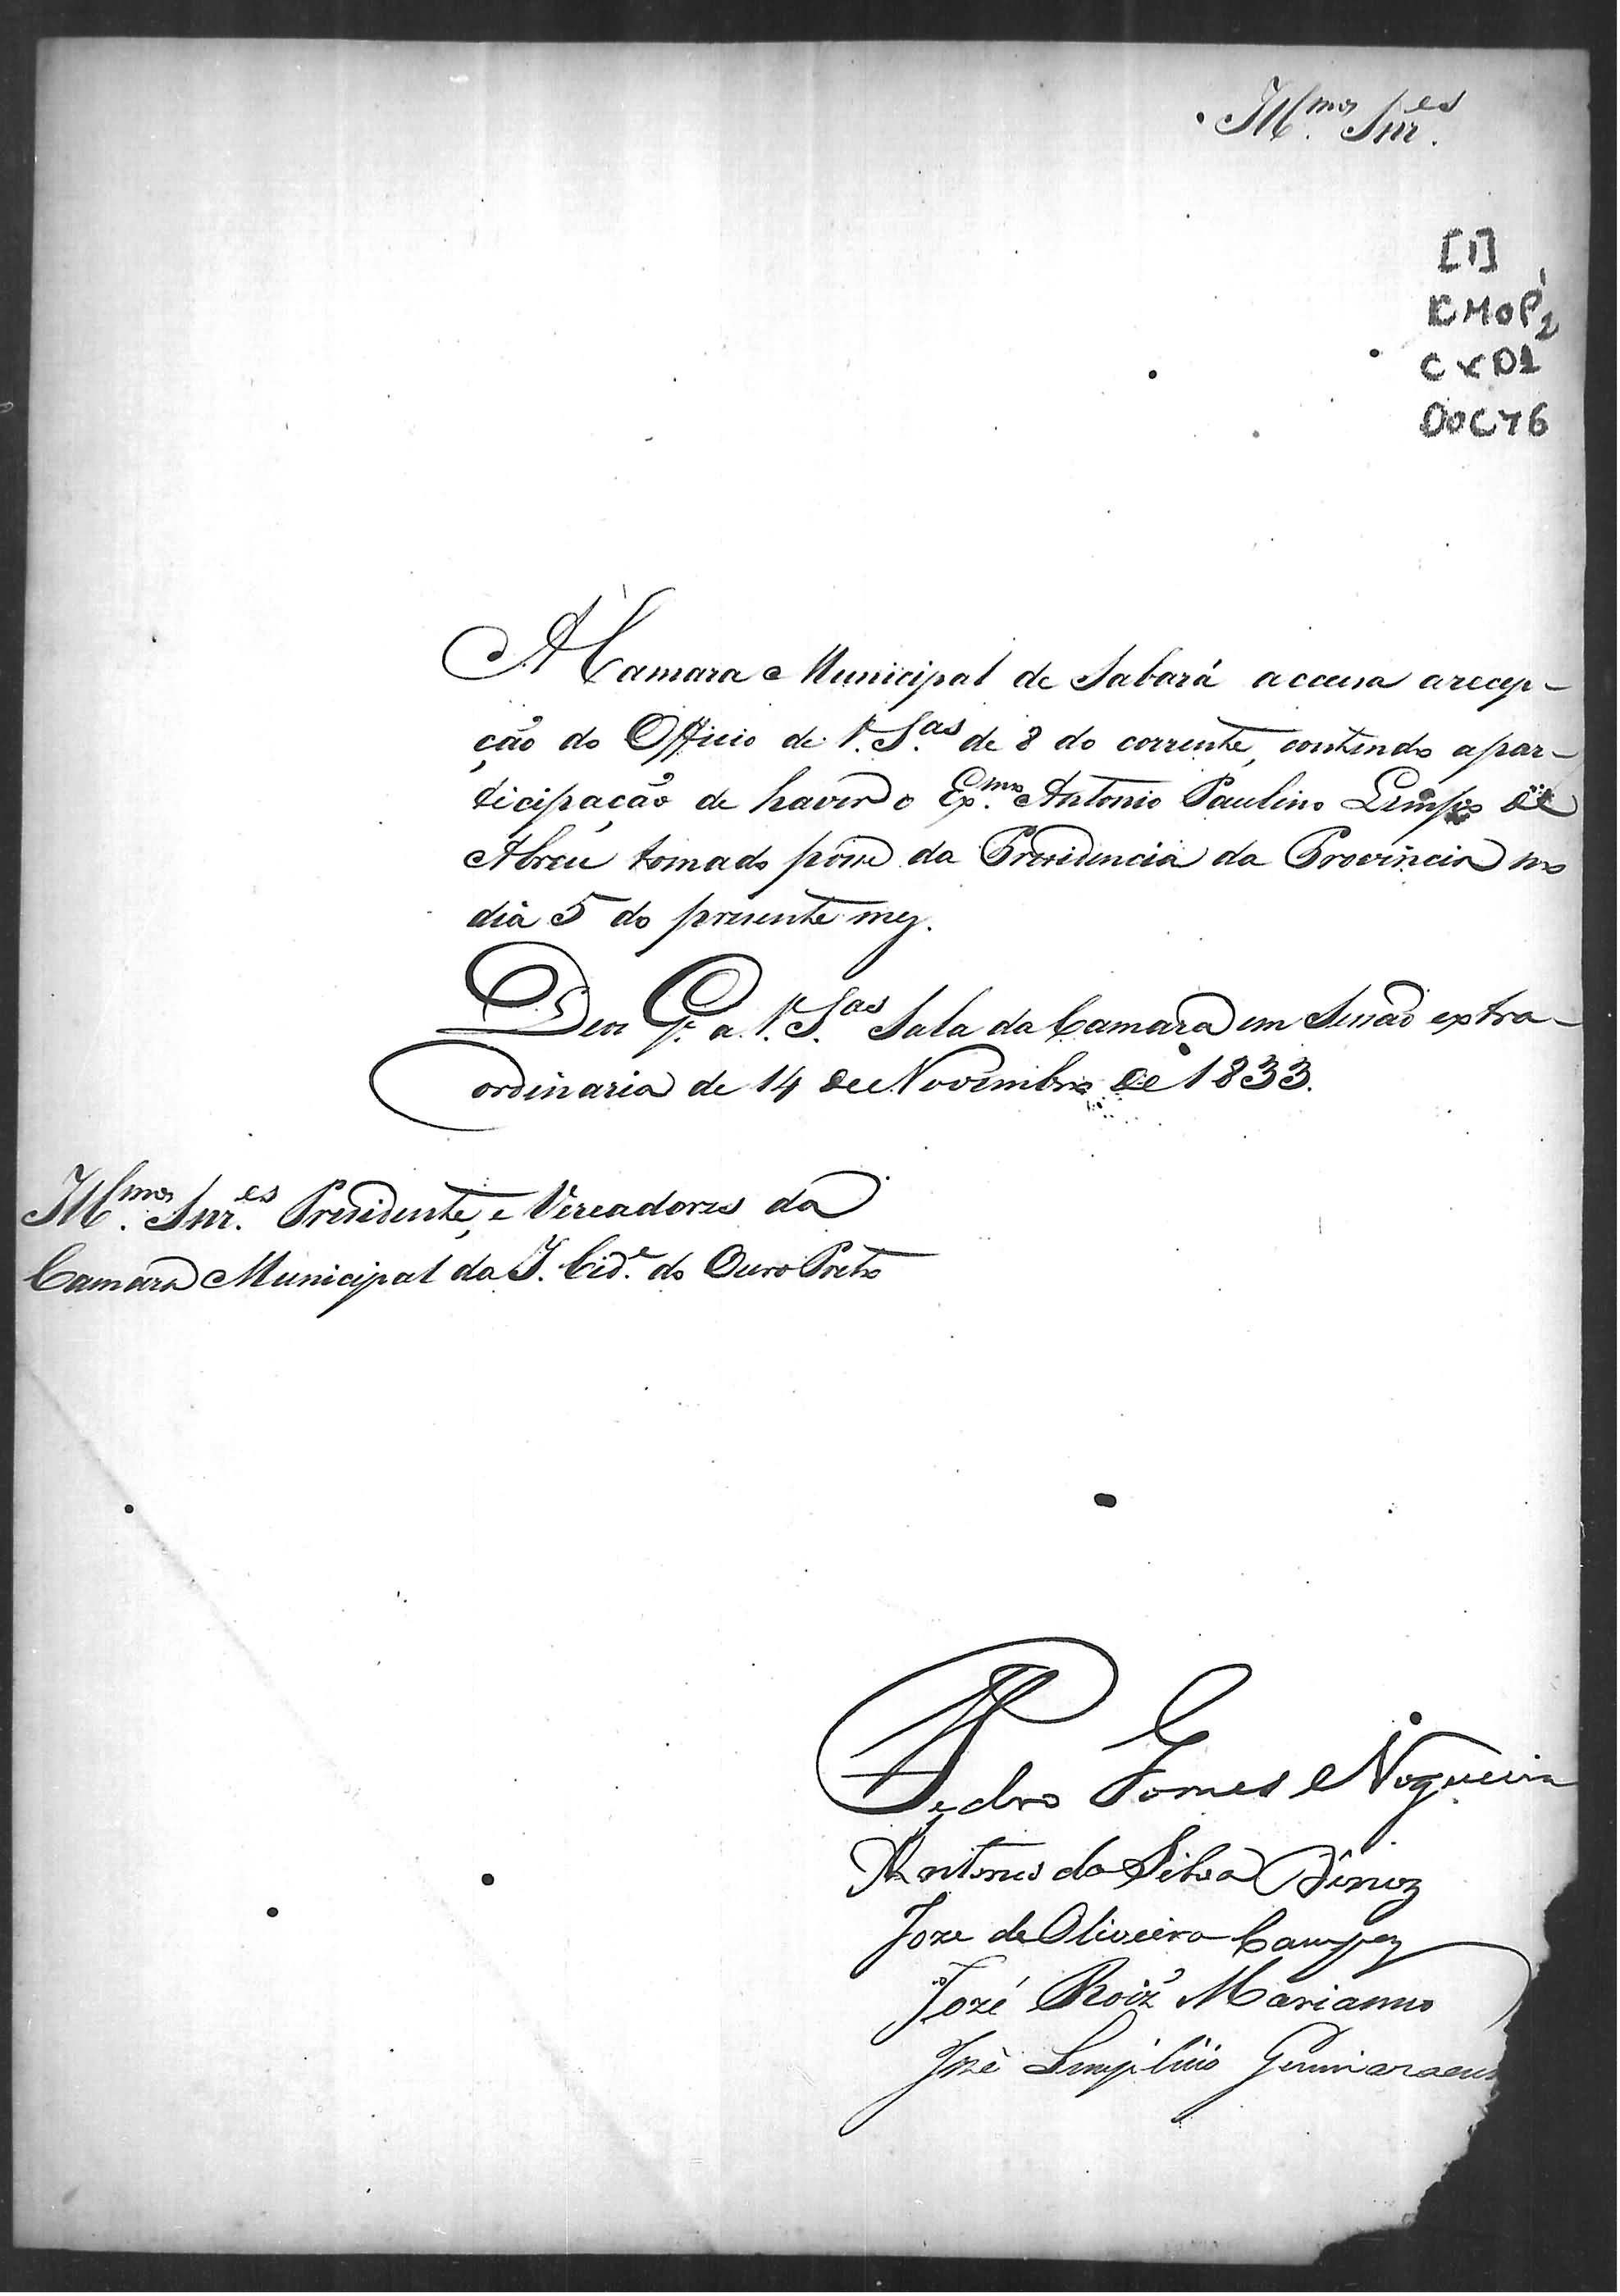 Ill.mos Snr.es
[1]
CMOP2
CX01
DOC76
A Camara Municipal de Sabará accusa a recep-
ção do Officio de V. S.as de 8 do corrente, contendo a par-
ticipação de haver o Ex.mo Antonio Paulino Limpo de
Abreu tomado posse da Presidencia da Provincia no
dia 5 do presente mez.
Deos G.e a V. S.as Sala da Camara em Sessão extra-
ordinaria de 14 de Novembro de 1833.
Ill.mos Snr.es Presidente, e Vereadores da
Camara Municipal da I. Cid.e do Ouro Preto
Pedro Gomes Nogueira
Antonio da Silva Diniz
Joze de Oliveira Campos
Jozé Roiz Marianno
José Simplicio Guimaraens